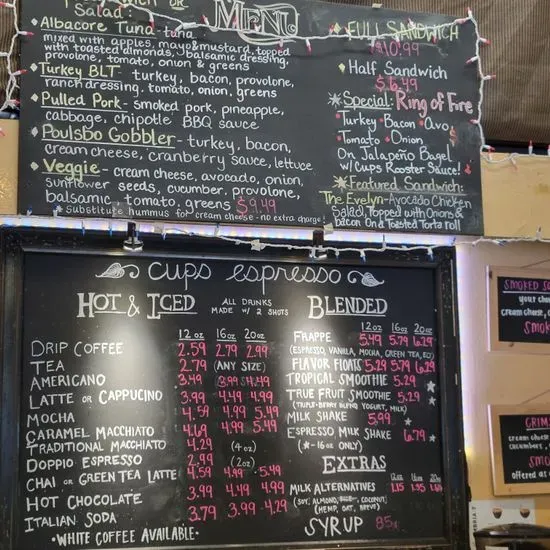 Salad:
MENU
Albacore Tuna - tuna
mixed with apples, mayo & mustard, topped
with toasted almonds, balsamic dressing,
provolone, tomato, onion & greens
Turkey BLT - turkey, bacon, provolone,
ranch dressing, tomato, onion, greens
Pulled Pork - smoked pork, pineapple,
cabbage, chipotle BBQ sauce
Poulsbo Gobbler - turkey, bacon,
cream cheese, cranberry sauce, lettuce
Veggie - cream cheese, avocado, onion,
sunflower seeds, cucumber, provolone,
balsamic, tomato, greens $9.49
*Substitute hummus for cream cheese - no extra charge!
FULL SANDWICH
$10.99
Half Sandwich
$6.49
Special: Ring of Fire
Turkey Bacon Avo
Tomato Onion
On Jalapeño Bagel
w/ Cups Rooster Sauce!
Featured Sandwich:
The Evelyn - Avocado Chicken
Salad, Topped with Onions &
Bacon On a Toasted Torta Roll
cups espresso
HOT & ICED
ALL DRINKS
MADE W/ 2 SHOTS
12 oz 16 oz 20 oz
DRIP COFFEE 2.59 2.79 2.99
TEA 2.79 (ANY SIZE)
AMERICANO 3.49 3.99 4.49
LATTE OR CAPPUCCINO 3.99 4.49 4.99
MOCHA 4.59 4.99 5.49
CARAMEL MACCHIATO 4.69 4.99 5.49
TRADITIONAL MACCHIATO 4.29 (4 oz)
DOPPIO ESPRESSO 2.99 (2 oz)
CHAI OR GREEN TEA LATTE 4.59 4.99 5.49
HOT CHOCOLATE 3.99 4.49 4.99
ITALIAN SODA 3.79 3.99 4.29
•WHITE COFFEE AVAILABLE•
BLENDED
12 oz 16 oz 20 oz
FRAPPE 5.49 5.79 6.29
(ESPRESSO, VANILLA, MOCHA, GREEN TEA, ECT)
FLAVOR FLOATS 5.29 5.79 6.29
TROPICAL SMOOTHIE 5.29 *
TRUE FRUIT SMOOTHIE 5.29 *
(TRIPLE-BERRY BLEND YOGURT, MILK)
MILK SHAKE 5.99 *
ESPRESSO MILK SHAKE 6.79 *
(*-16 oz ONLY)
EXTRAS
12 oz 16 oz 20 oz
MILK ALTERNATIVES 1.15 1.35
(SOY, ALMOND, COCONUT)
(HEMP, OAT, BREVE)
SYRUP 85¢
SMOKED
your
cream cheese,
SMOK
cream cheese
cucumbers,
SMO
offered at